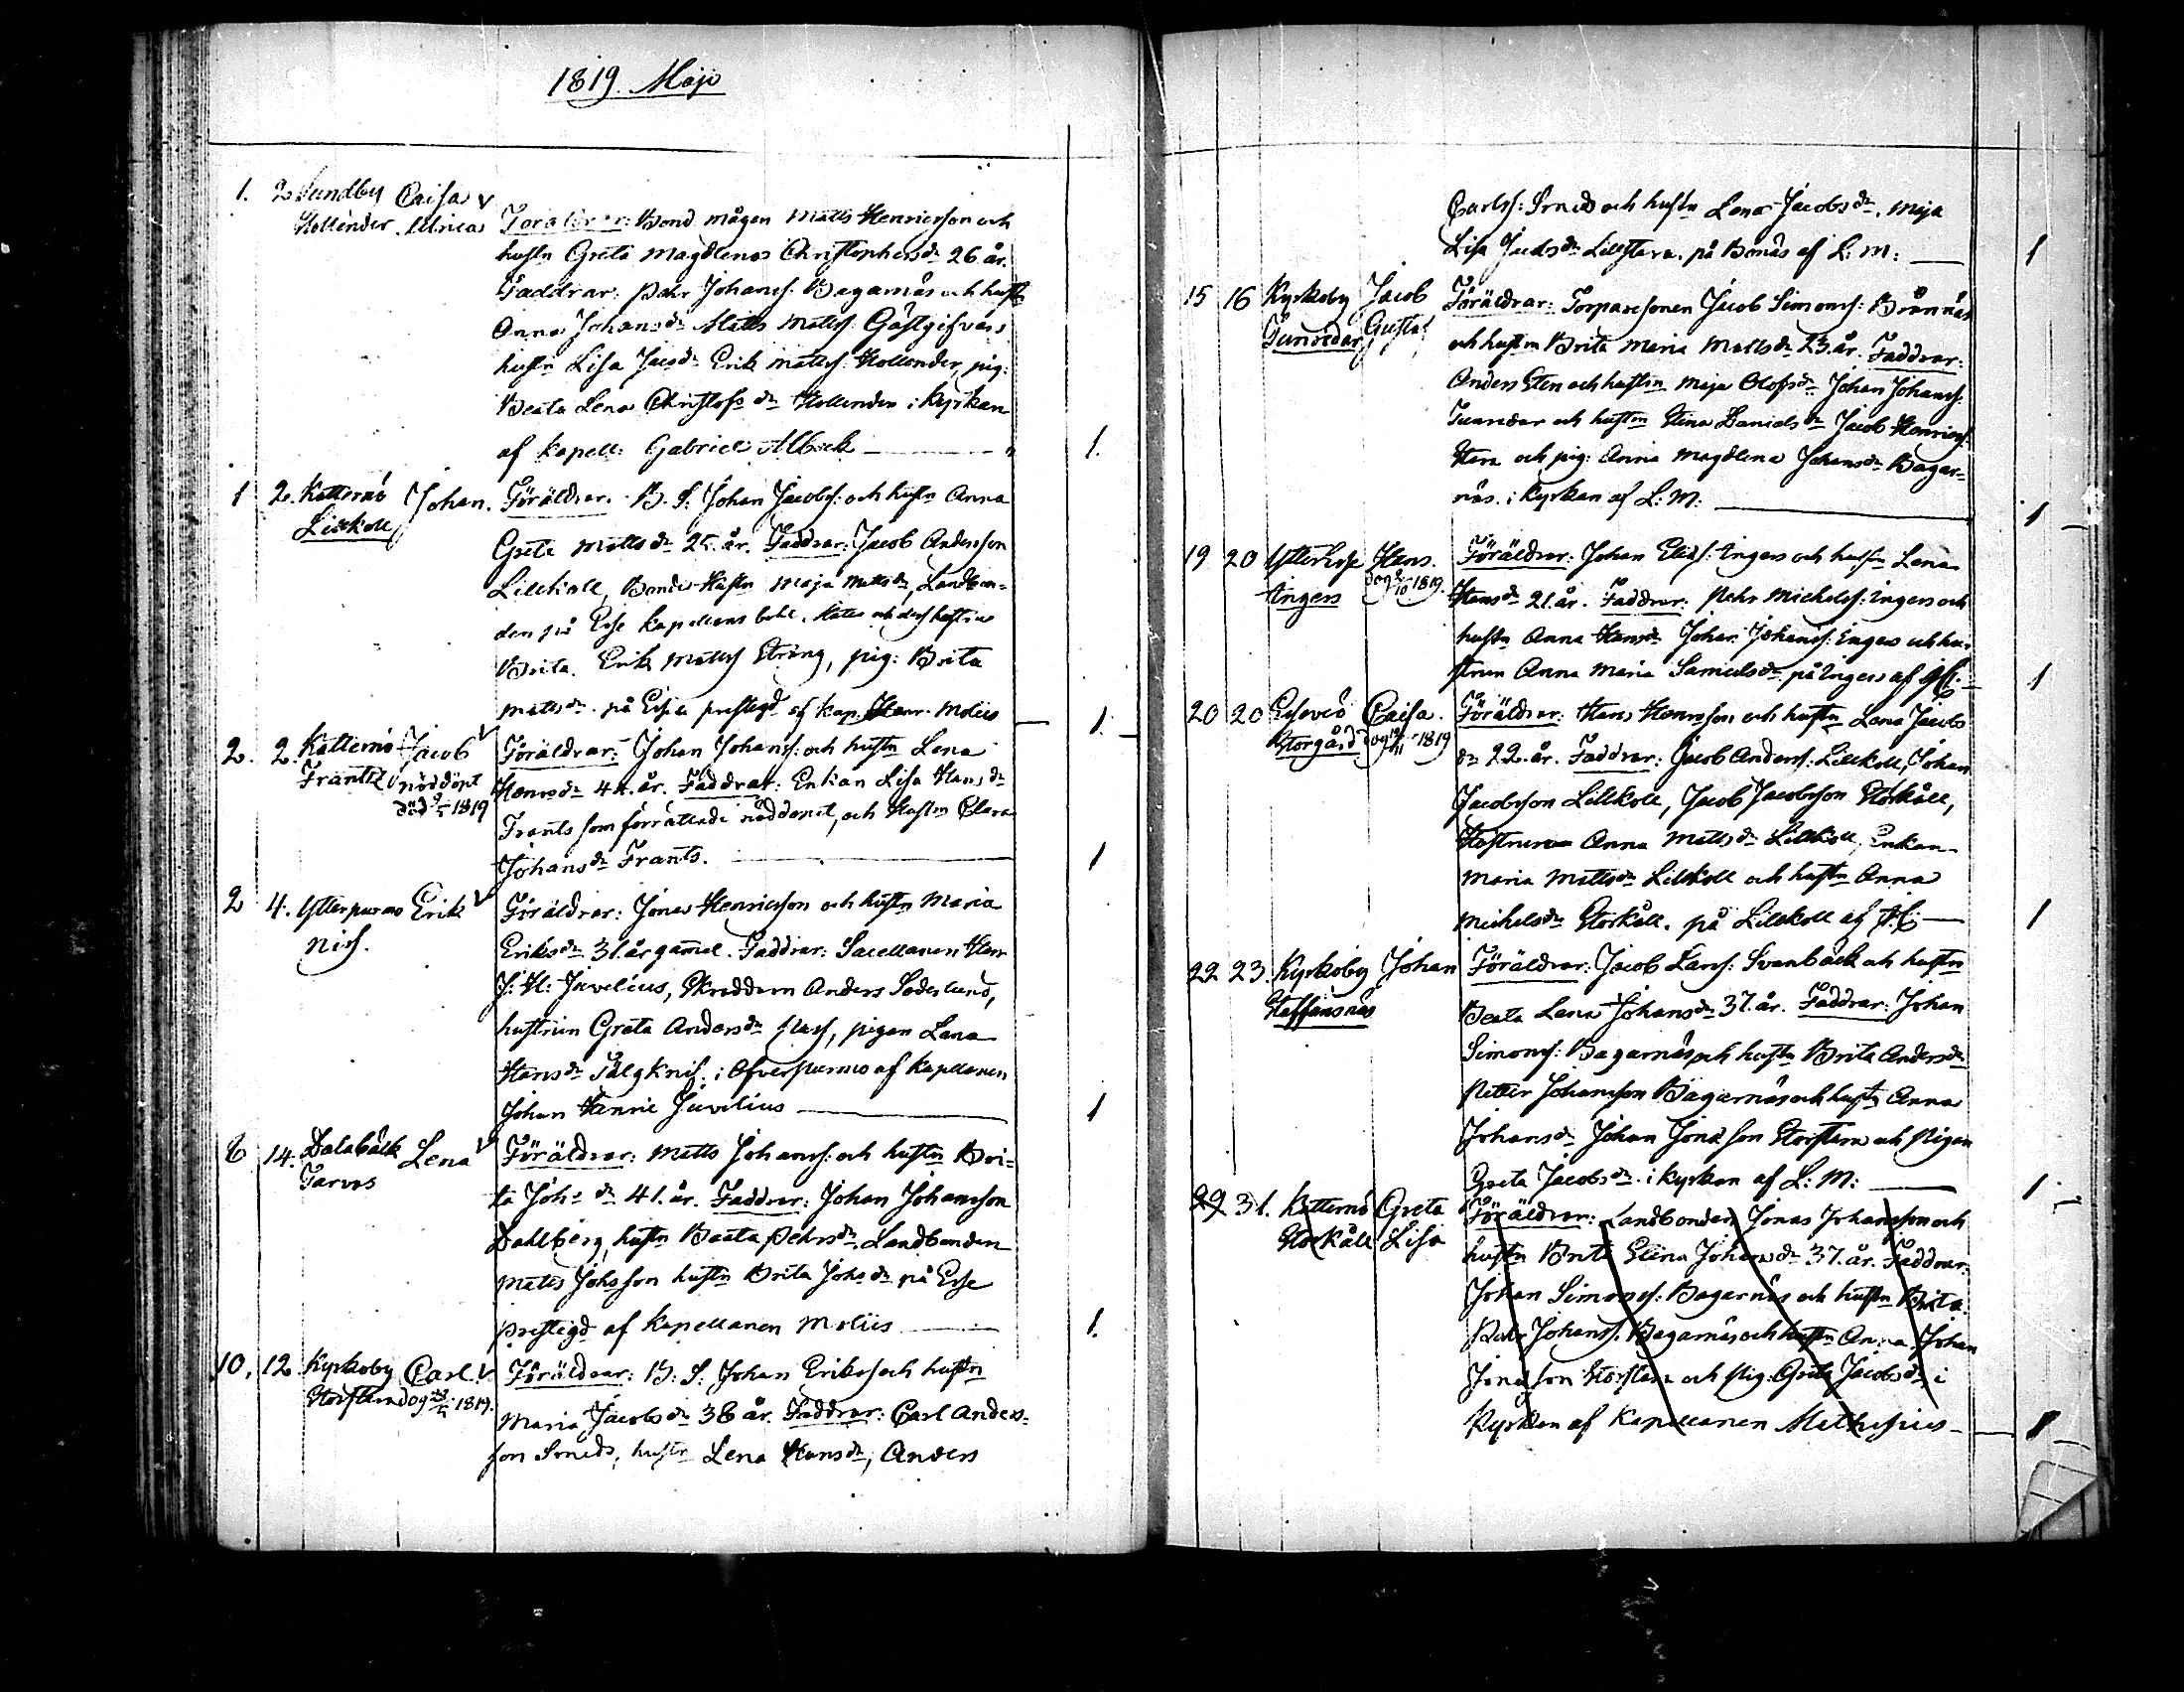 1819. Majo
1. 2 Sundby Caisa
Hollender. Ulrica Föräldrar: Bond mågen Matts Henricsson och
hustn Greta Magdlena Christophersdr 26 år.
Faddrar: Pehr Johanss: Bagarnäs och hustn
Anna Johansdr Matts Matss: Gästgifvars
hustn Lisa Jacsdr Erik Matss: Hollender, pig:
Beata Lena Christofsdr Hollender i Kyrkan
af Kapell: Gabriel Alback 1.
1 2. Katternö Johan. Föräldrar. B. S: Johan Jacobss: och hustn Anna
Lillkåll
Greta Mattsdr 25 år. Faddrar: Jacob Andersson
Lillkåll, Bonde Hustn Maja Mattsdr, Landbon-
den på Esse Kapellans bohl. Matts och dess hustru
Brita. Erik Matts Sträng, pig: Brita
Mattsdr. på Esse prestegd af Kap. Henr. Molius 1.
2. 2. Katternö Jacob Föräldrar: Johan Johanss: och hustn Lena
Frants nöddöpt Henrsdr 44. år. Faddrar: Enkan Lisa Hansdr
död 1819
Frants som förrättade nöddopet, och Hustn Clara
Johansdr Frants. 1
2 4. Ytterpurmo Erik Föräldrar: Jonas Henricsson och hustn Maria
Niss.
Eriksdr 31. år gamel. Faddrar: Sacellanen Herr
J: H: Juvelius, Skreddern Anders Söderlund,
hustrun Greta Andersdr, pigan Lena
Hansdr i Öfverpurmo af Kapellanen
Johan Henric Juvelius 1
8 14. Dalabäck Lena Föräldrar: Matts Johanss: och hustn Bri-
Jarvos
ta Johsdr 41. år. Faddrar: Johan Johansson
Dahlberg, hustn Beata Pehrsdr. Landbonden
Matts Johsson hustn Brita Johsdr på Esse
prestegd af Kapellanen Molius 1.
10. 12 Kyrkoby Carl. Föräldrar: B: S: Johan Erikss och hustn
Storstara dog 1819.
Maria Jacobsdr 38 år. Faddrar: Carl Anders-
son Smeds, hustr Lena Hansdr, Anders
Carlss: Smeds och hustn Lena Jacobsdr. Maja
Lisa Jacobsdr Lillstara. på Bonäs af L: M: 1
15 16 Kyrkoby Jacob Föräldrar: Torparesonen Jacob Simonss: Brännäs
Gustaf
och hustrn Brita Maria Mattsdr 23. år. Faddrar:
Anders Sten och hustrn Maja Olofsdr: Johan Johanss.
och hustrn Stina Danielsdr Jacob Henricss:
Stara och pig: Anna Magdlena Johansdr Bagar-
näs. i Kyrkan af L: M: 1
19 20 Ytteresse Hans. Föräldrar: Johan Eliæs: Ingers och hustrn Lena
Ingers dog 1819.
Hansdr 21. år. Faddrar: Pehr Michelss: Ingers och
hustn Anna Hansdr Johan Johanss: Ingers och hu-
strun Anna Maria Samuelsdr på Ingers af 1
20 20 Caisa. Föräldrar: Hans Henrsson och hustn Lena Jacobs
Storgård dog 1819
dr 22. år. Faddrar: Jacob Anderss: Lillkåll, Johan
Jacobsson Lillkoll, Jacob Jacobsson Storkåll,
Hustrurna Anna Mattsdr Lillkoll, Enkan
Maria Mattsdr Lillkoll och hustn Anna
Michelsdr Storkåll. på Lillkoll af 1
22 23. Kyrkoby Johan Föräldrar: Jacob Larss: Svanbäck och hustrn
Staffansnäs
Beata Lena Johansdr 37. år. Faddrar: Johan
Simonss: Bagarnäs och hustn Brita Andersdr
Petter Johansson Bagarnäs och hustn Anna
Johansdr Johan Jonasson Storstara och Pigan
Greta Jacobsdr. i Kyrkan af L: M: 1
29 31. Katternö Greta Föräldrar: Landbonden Jonas Johansson och
Storkåll Lisa
hustn Brita Stina Johansdr 37. år. Faddrar:
Johan Simonss: Bagarnäs och hustn Brita.
Pehr Johanss. Bagarnäs och hustn Anna, Johan
Jonasson Storstara och Pig. Greta Jacobsdr i
Kyrkan af Kapellanen Mathesius 1